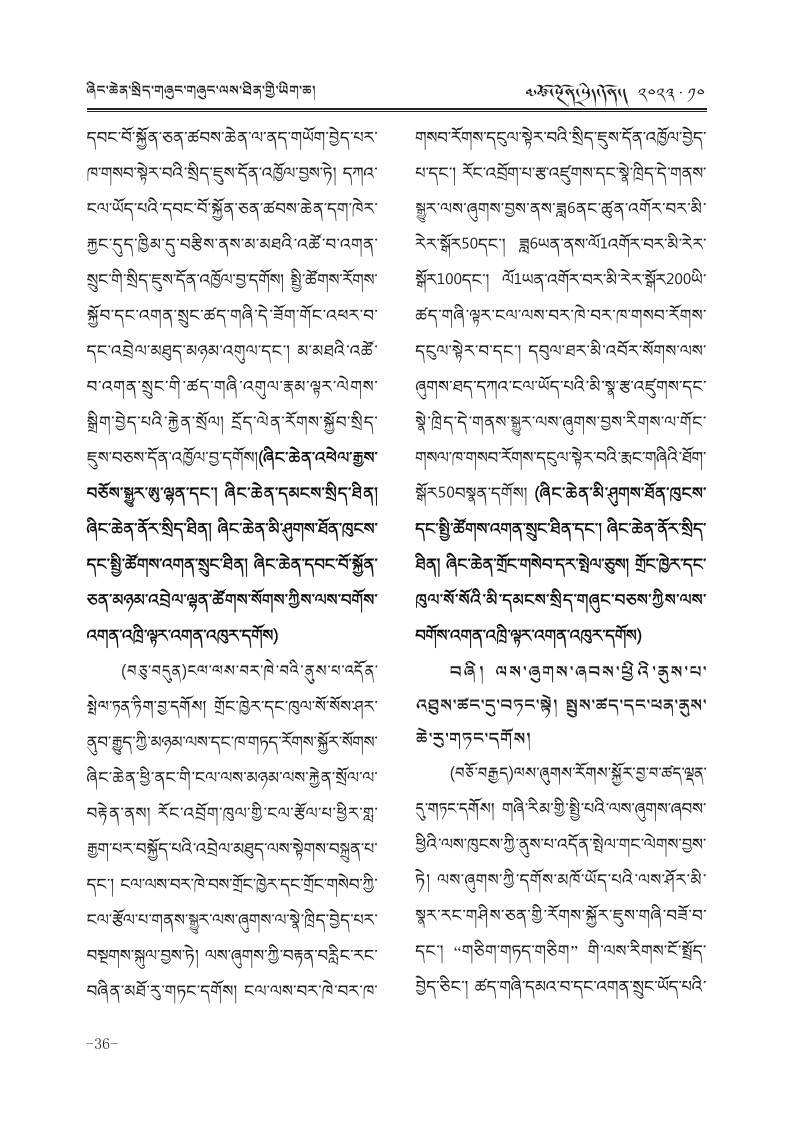 ཞིང་ཆེན་སྲིད་གཞུང་གཞུང་ལས་ཐིན་གྱི་ཡིག་ཆ།
༢༠༢༣ · ༡༠
དབང་པོ་སྐྱོན་ཅན་ཚབས་ཆེན་ལ་ནད་གཡོག་བྱེད་པར་
ཁ་གསབ་སྟེར་བའི་སྲིད་ཇུས་དོན་འཁྱོལ་བྱས་ཏེ། དཀའ་
ངལ་ཡོད་པའི་དབང་པོ་སྐྱོན་ཅན་ཚབས་ཆེན་དག་ཁེར་
རྐྱང་དུད་ཁྱིམ་དུ་བརྩིས་ནས་མ་མཐའི་འཚོ་བ་འགན་
སྲུང་གི་སྲིད་ཇུས་དོན་འཁྱོལ་བྱ་དགོས། སྤྱི་ཚོགས་རོགས་
སྐྱོབ་དང་འགན་སྲུང་ཚད་གཞི་དེ་ཟོག་གོང་འཕར་བ་
དང་འབྲེལ་མཐུད་མཉམ་འགུལ་དང་། མ་མཐའི་འཚོ་
བ་འགན་སྲུང་གི་ཚད་གཞི་འགུལ་རྣམ་ལྟར་ལེགས་
སྒྲིག་བྱེད་པའི་རྐྱེན་སྲོལ། དྲོད་ལེན་རོགས་སྐྱོབ་སྲིད་
ཇུས་བཅས་དོན་འཁྱོལ་བྱ་དགོས།(ཞིང་ཆེན་འཕེལ་རྒྱས་
བཅོས་སྒྱུར་ཨུ་ལྷན་དང་། ཞིང་ཆེན་དམངས་སྲིད་ཐིན།
ཞིང་ཆེན་ནོར་སྲིད་ཐིན། ཞིང་ཆེན་མི་ཤུགས་ཐོན་ཁུངས་
དང་སྤྱི་ཚོགས་འགན་སྲུང་ཐིན། ཞིང་ཆེན་དབང་པོ་སྐྱོན་
ཅན་མཉམ་འབྲེལ་ལྷན་ཚོགས་སོགས་ཀྱིས་ལས་བགོས་
འགན་འཁྲི་ལྟར་འགན་འཁུར་དགོས)
(བཅུ་བདུན)ངལ་ལས་བར་ཁེ་བའི་ནུས་པ་འདོན་
སྤེལ་ཏན་ཏིག་བྱ་དགོས། གྲོང་ཁྱེར་དང་ཁུལ་སོ་སོས་ཤར་
ནུབ་རྒྱུད་ཀྱི་མཉམ་ལས་དང་ཁ་གཏད་རོགས་སྐྱོར་སོགས་
ཞིང་ཆེན་ཕྱི་ནང་གི་ངལ་ལས་མཉམ་ལས་རྐྱེན་སྲོལ་ལ་
བརྟེན་ནས། རོང་འབྲོག་ཁུལ་གྱི་ངལ་རྩོལ་པ་ཕྱིར་གླ་
རྒྱག་པར་བསྐྱོད་པའི་འབྲེལ་མཐུད་ལས་སྟེགས་བསྐྲུན་པ་
དང་། ངལ་ལས་བར་ཁེ་བས་གྲོང་ཁྱེར་དང་གྲོང་གསེབ་ཀྱི་
ངལ་རྩོལ་པ་གནས་སྒྱུར་ལས་ཞུགས་ལ་སྣེ་ཁྲིད་བྱེད་པར་
བསྔགས་སྐུལ་བྱས་ཏེ། ལས་ཞུགས་ཀྱི་བརྟན་བརླིང་རང་
བཞིན་མཐོ་རུ་གཏང་དགོས། ངལ་ལས་བར་ཁེ་བར་ཁ་
གསབ་རོགས་དངུལ་སྟེར་བའི་སྲིད་ཇུས་དོན་འཁྱོལ་བྱེད་
པ་དང་། རོང་འབྲོག་པ་རྩ་འཛུགས་དང་སྣེ་ཁྲིད་དེ་གནས་
སྒྱུར་ལས་ཞུགས་བྱས་ནས་ཟླ6ནང་ཚུན་འགོར་བར་མི་
རེར་སྒོར50དང་། ཟླ6ཡན་ནས་ལོ1འགོར་བར་མི་རེར་
སྒོར100དང་། ལོ1ཡན་འགོར་བར་མི་རེར་སྒོར200ཡི་
ཚད་གཞི་ལྟར་ངལ་ལས་བར་ཁེ་བར་ཁ་གསབ་རོགས་
དངུལ་སྟེར་བ་དང་། དབུལ་ཐར་མི་འབོར་སོགས་ལས་
ཞུགས་ཐད་དཀའ་ངལ་ཡོད་པའི་མི་སྣ་རྩ་འཛུགས་དང་
སྣེ་ཁྲིད་དེ་གནས་སྒྱུར་ལས་ཞུགས་བྱས་རིགས་ལ་གོང་
གསལ་ཁ་གསབ་རོགས་དངུལ་སྟེར་བའི་རྨང་གཞིའི་ཐོག་
སྒོར50བསྣན་དགོས། (ཞིང་ཆེན་མི་ཤུགས་ཐོན་ཁུངས་
དང་སྤྱི་ཚོགས་འགན་སྲུང་ཐིན་དང་། ཞིང་ཆེན་ནོར་སྲིད་
ཐིན། ཞིང་ཆེན་གྲོང་གསེབ་དར་སྤེལ་ཅུས། གྲོང་ཁྱེར་དང་
ཁུལ་སོ་སོའི་མི་དམངས་སྲིད་གཞུང་བཅས་ཀྱིས་ལས་
བགོས་འགན་འཁྲི་ལྟར་འགན་འཁུར་དགོས)
བཞི། ལས་ཞུགས་ཞབས་ཕྱི་འི་ནུས་པ་
འཐུས་ཚང་དུ་བཏང་སྟེ། སྤུས་ཚད་དང་ཕན་ནུས་
ཆེ་རུ་གཏང་དགོས།
(བཅོ་བརྒྱད)ལས་ཞུགས་རོགས་སྐྱོར་བྱ་བ་ཚད་ལྡན་
དུ་གཏང་དགོས། གཞི་རིམ་གྱི་སྤྱི་པའི་ལས་ཞུགས་ཞབས་
ཕྱིའི་ལས་ཁུངས་ཀྱི་ནུས་པ་འདོན་སྤེལ་གང་ལེགས་བྱས་
ཏེ། ལས་ཞུགས་ཀྱི་དགོས་མཁོ་ཡོད་པའི་ལས་ཤོར་མི་
སྣར་རང་གཤིས་ཅན་གྱི་རོགས་སྐྱོར་ཇུས་གཞི་བཟོ་བ་
དང་། “གཅིག་གཏད་གཅིག” གི་ལས་རིགས་ངོ་སྤྲོད་
བྱེད་ཅིང་། ཚད་གཞི་དམའ་བ་དང་འགན་སྲུང་ཡོད་པའི་
-36-